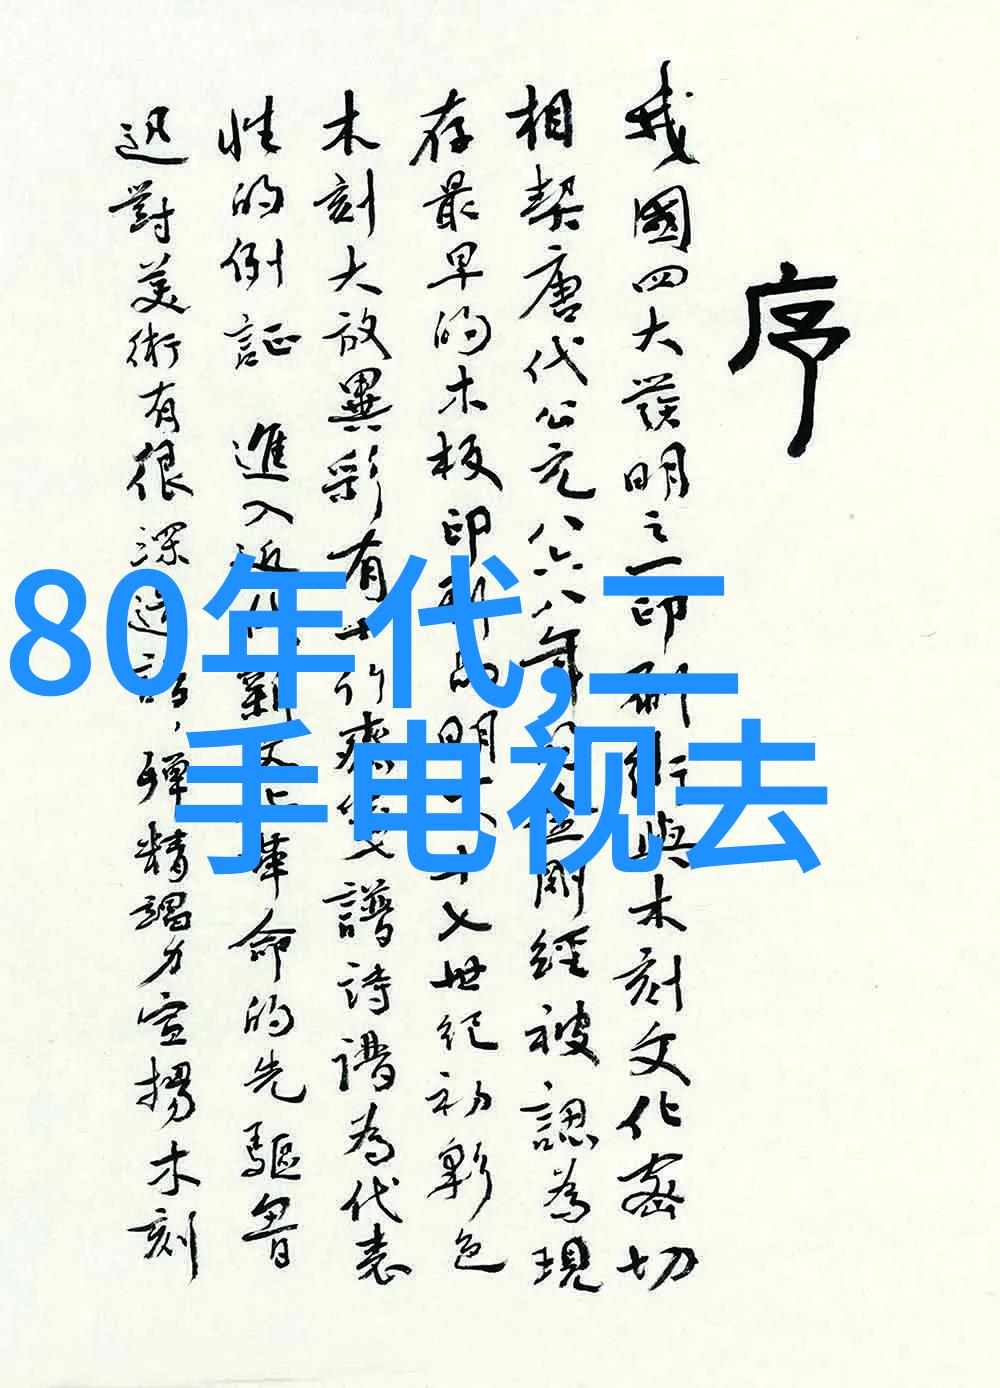 序
我國四大發明之一印刷術與木刻文化密切
相契唐代公元八六八年金剛經被認為現
存最早的木板印刷品明 十七世紀初彩色
木刻大放異彩有十竹齋箋譜詩譜為代表
性的例証 進入近代新文化革命的先驅魯
迅對美術有很深造詣，殫精竭力宣揚木刻
80年代,二
手电视去